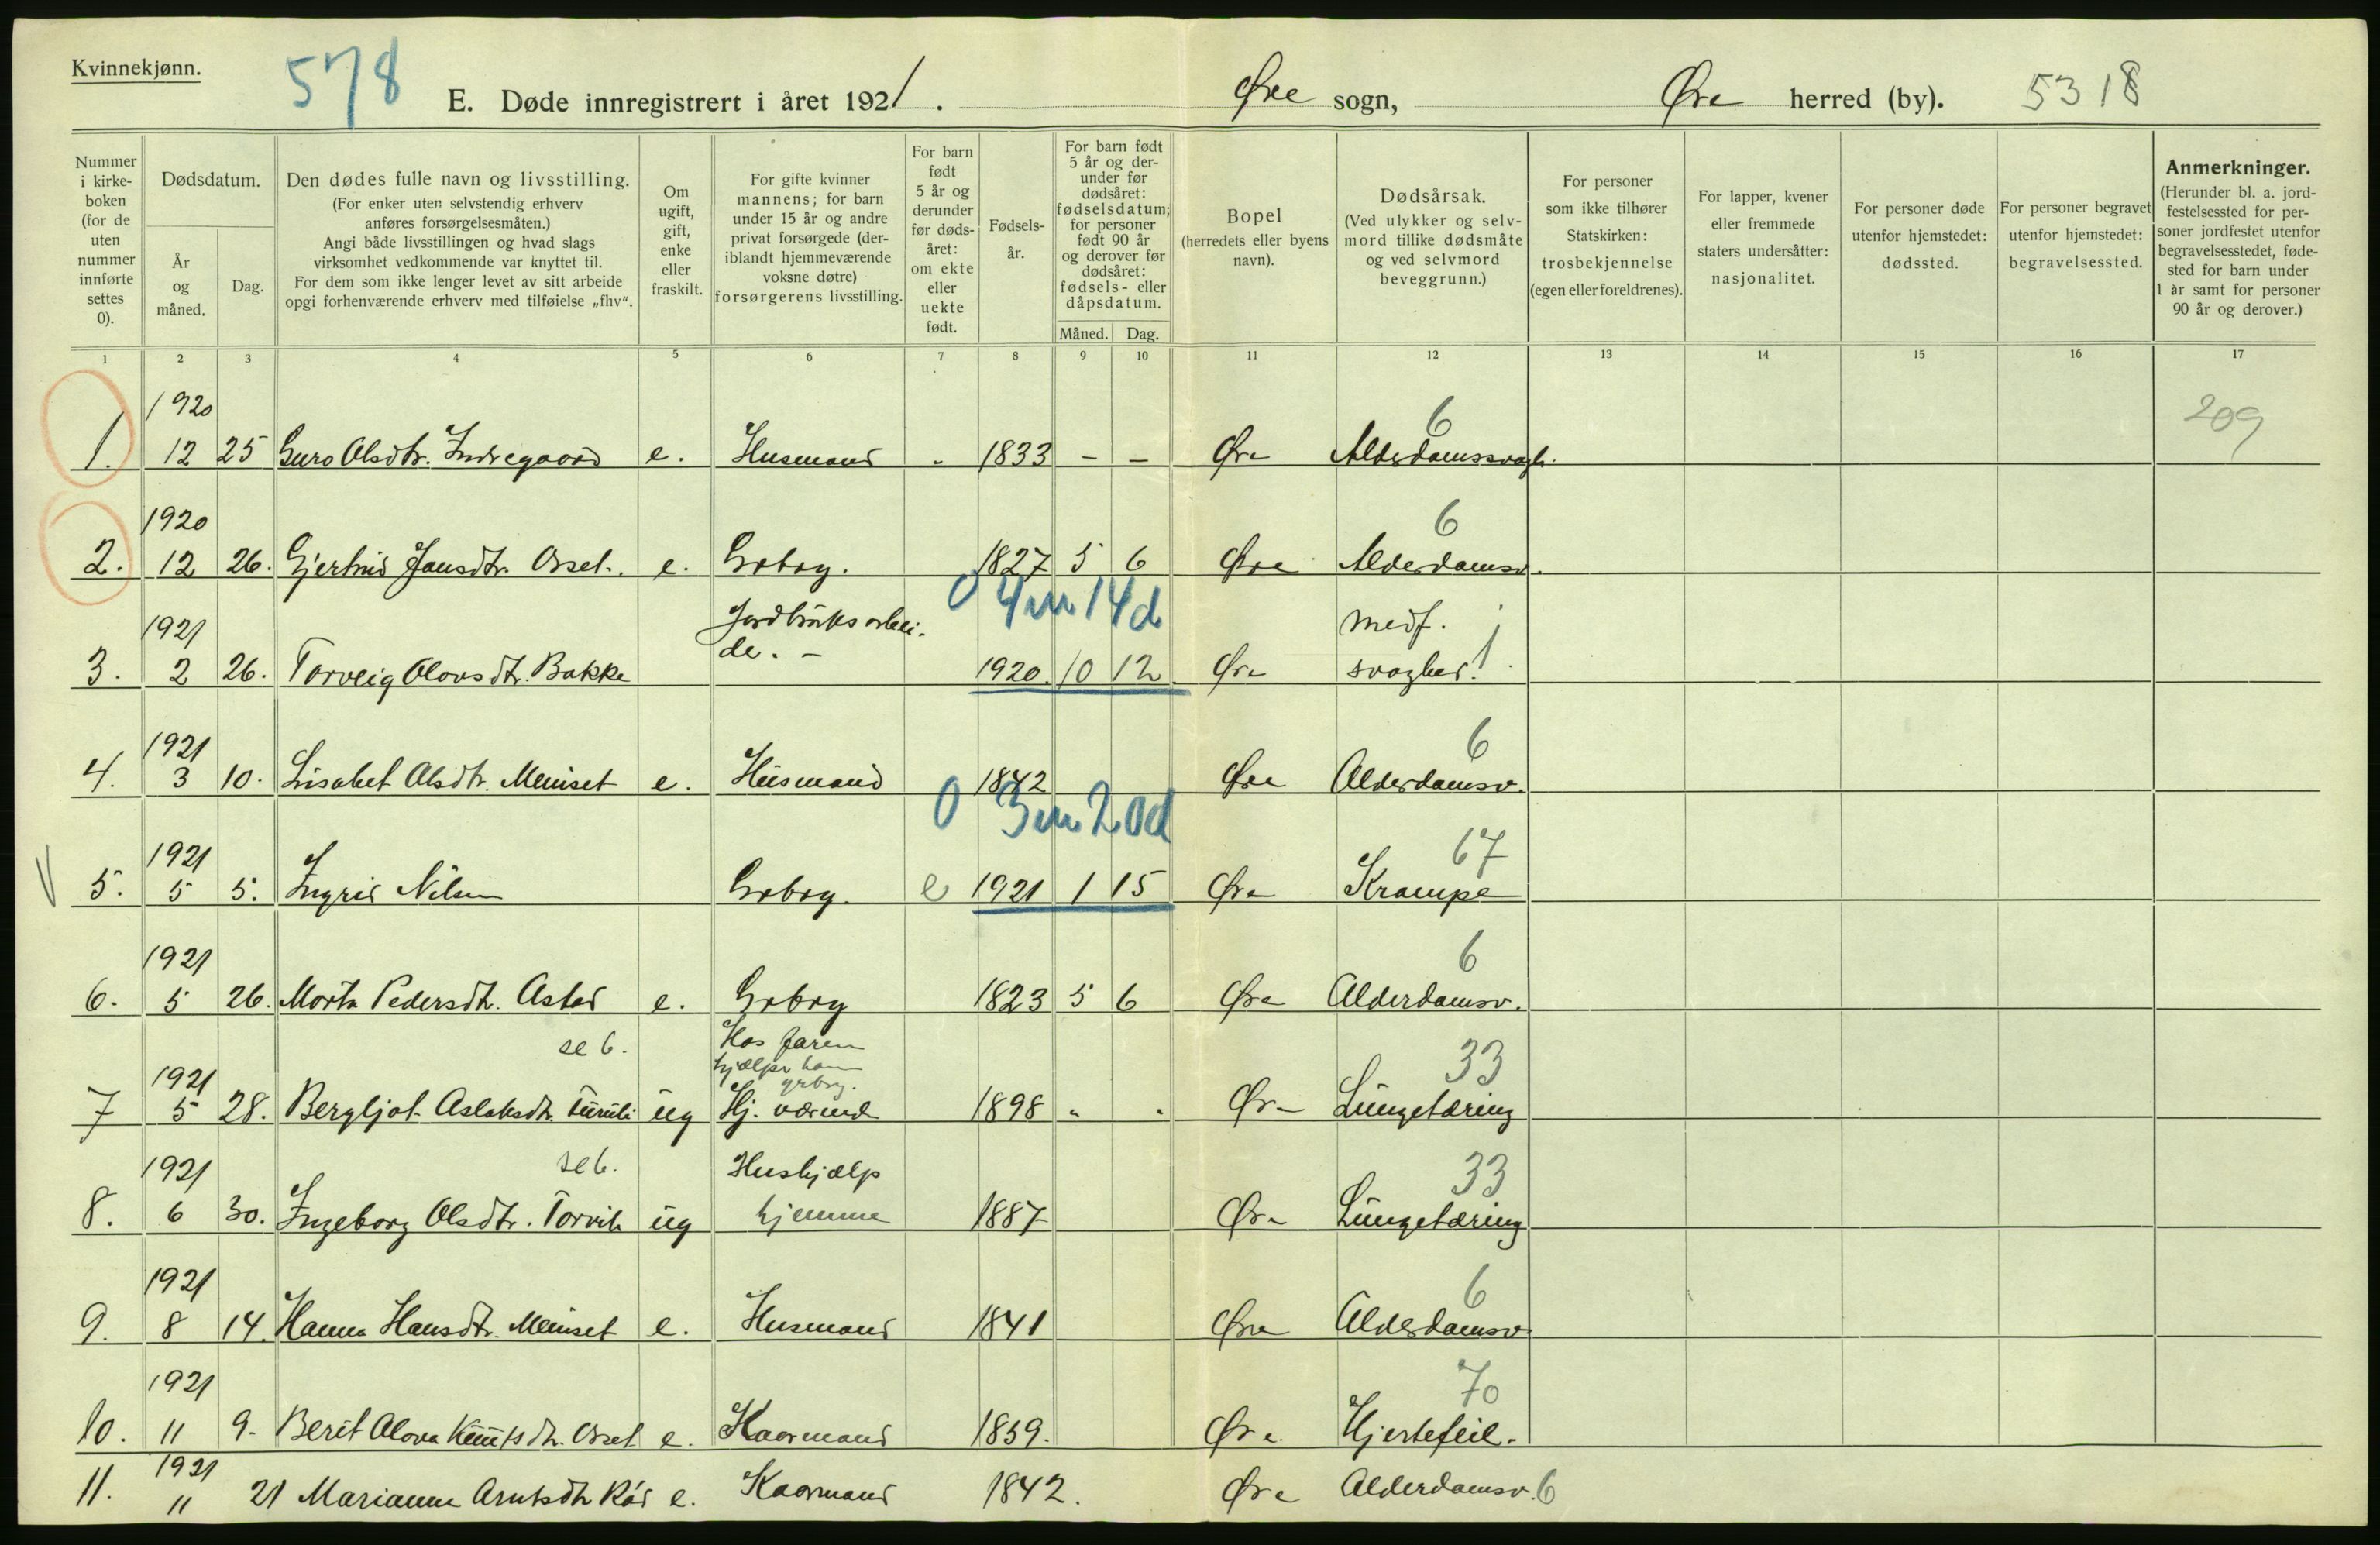 Kvinnekjønn.
578
E. Døde innregistrert i året 1921. Øre sogn, Øre herred (by). 5318
Nummer i kirkeboken (for de uten nummer innførte settes 0).
Dødsdatum.
År og måned.
Dag.
Den dødes fulle navn og livsstilling.
(For enker uten selvstendig erhverv anføres forsørgelsesmåten.)
Angi både livsstillingen og hvad slags virksomhet vedkommende var knyttet til.
For dem som ikke lenger levet av sitt arbeide opgi forhenværende erhverv med tilføielse „fhv“.
Om ugift, gift, enke eller fraskilt.
For gifte kvinner mannens; for barn under 15 år og andre privat forsørgede (deriblandt hjemmeværende voksne døtre) forsørgerens livsstilling.
For barn født 5 år og derunder før dødsåret: om ekte eller uekte født.
Fødselsår.
For barn født 5 år og derunder før dødsåret: fødselsdatum; for personer født 90 år og derover før dødsåret: fødsels- eller dåpsdatum.
Måned. Dag.
Bopel (herredets eller byens navn).
Dødsårsak.
(Ved ulykker og selvmord tillike dødsmåte og ved selvmord beveggrunn.)
For personer som ikke tilhører Statskirken: trosbekjennelse (egen eller foreldrenes).
For lapper, kvener eller fremmede staters undersåtter: nasjonalitet.
For personer døde utenfor hjemstedet: dødssted.
For personer begravet utenfor hjemstedet: begravelsessted.
Anmerkninger.
(Herunder bl. a. jordfestelsessted for personer jordfestet utenfor begravelsesstedet, fødested for barn under 1 år samt for personer 90 år og derover.)
1 2 3 4 5 6 7 8 9 10 11 12 13 14 15 16 17
1920 6 209
1. 12 25 Guro Olsdtr. Indregaard e. Husmand - 1833 - - Øre Alderdomssvagh.
1920 6
2. 12 26. Gjertrud Jonsdtr. Orset. e. Grbrg. 1827 5 6 Øre Alderdomsv.
0 4m 14d
1921 Jordbruksarbei- medf.
de. -
3. 2 26. Torveig Olovsdtr. Bakke 1920. 10 12 Øre svaghed. 1.
1921 6
4. 3 10. Lisabet Olsdtr. Meniset e. Husmand 1842 Øre Alderdomsv.
0 3m 20d
1921 67
V 5. 5 5. Ingrid Nilsen Grbrg. e 1921 1 15 Øre Krampe
1921 6
6. 5 26. Morta Pedersdtr. Astad e. Grbrg 1823 5 6 Øre Alderdomsv.
se 6. Hos faren
hjælper ham 33
1921 grbrg.
7 5 28. Bergljot Aslaksdtr. ug Hj. værende 1898 " " Øre Lungetæring
1921 se 6. Hushjælp 33
8. 6 30. Ingeborg Olsdtr. Torvik ug hjemme 1887 Øre Lungetæring
1921 6
9. 8 14. Hanna Hansdtr. Meniset e. Husmand 1841 Øre Alderdomsv
1921 70
10. 11 9. Berit Olova Knutsdtr. Orset e. Kaarmand 1859. Øre Hjertefeil.
1921
11. 11 21 Marianne Arntsdtr Rød e. Kaarmand 1842. Øre Alderdomsv. 6